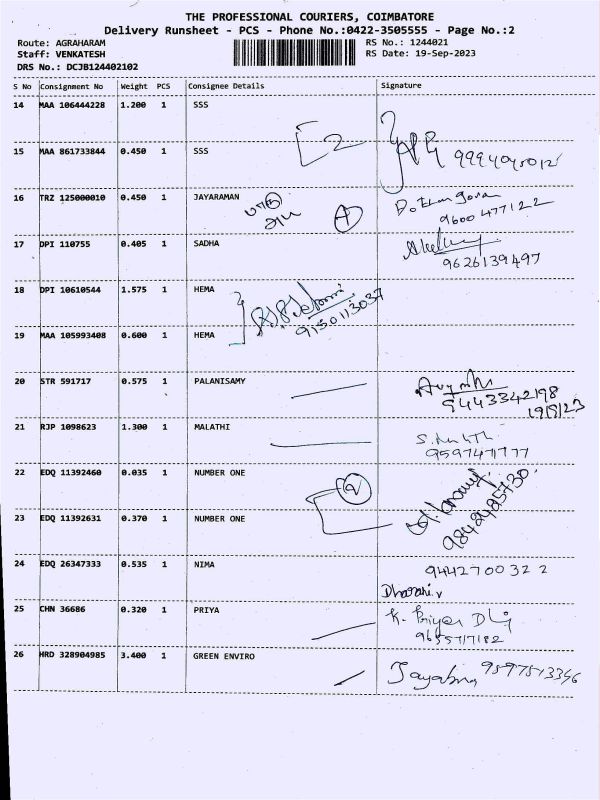 THE PROFESSIONAL COURIERS, COIMBATORE
Delivery Runsheet - PCS - Phone No.:0422-3505555 - Page No.:2
Route: AGRAHARAM RS No.: 1244021
Staff: VENKATESH RS Date: 19-Sep-2023
DRS No.: DCJB124402102
S No Consignment No Weight PCS Consignee Details Signature
14 MAA 106444228 1.200 1 SSS
2
15 MAA 861733844 0.450 1 SSS
16 TRZ 125000010 0.450 1 JAYARAMAN
9600 477122
17 DPI 110755 0.405 1 SADHA
9626139497
18 DPI 10610544 1.575 1 HEMA
9150113037
19 MAA 105993408 0.600 1 HEMA
20 STR 591717 0.575 1 PALANISAMY
9443342198
19/9/23
21 RJP 1098623 1.300 1 MALATHI
22 EDQ 11392460 0.035 1 NUMBER ONE
2
23 EDQ 11392631 0.370 1 NUMBER ONE
9842485730
24 EDQ 26347333 0.535 1 NIMA
9442700322
Dharani
25 CHN 36686 0.320 1 PRIYA
K. Priya
9655717182
26 HRD 328904985 3.400 1 GREEN ENVIRO
9597513356